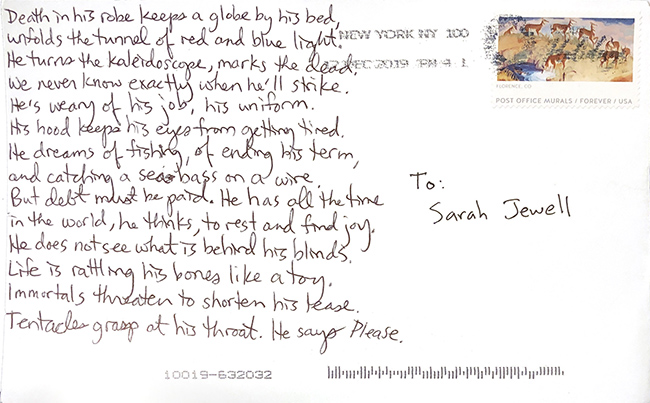 Death in his robe keeps a globe by his bed,
unfolds the tunnel of red and blue light.
He turns the kaleidoscope, marks the dead.
We never know exactly when he'll strike.
He's weary of his job, his uniform.
His hood keeps his eyes from getting tired.
He dreams of fishing, of ending his term,
and catching a sea bass on a wire.
But debt must be paid. He has all the time
in the world, he thinks, to rest and find joy.
He does not see what is behind his blinds.
Life is rattling his bones like a toy.
Immortals threaten to shorten his lease.
Tentacles grasp at his throat. He says Please.
NEW YORK NY 100
DEC 2019 PM 4 L
FLORENCE, CO
POST OFFICE MURALS / FOREVER / USA
To:
Sarah Jewell
10019-632032